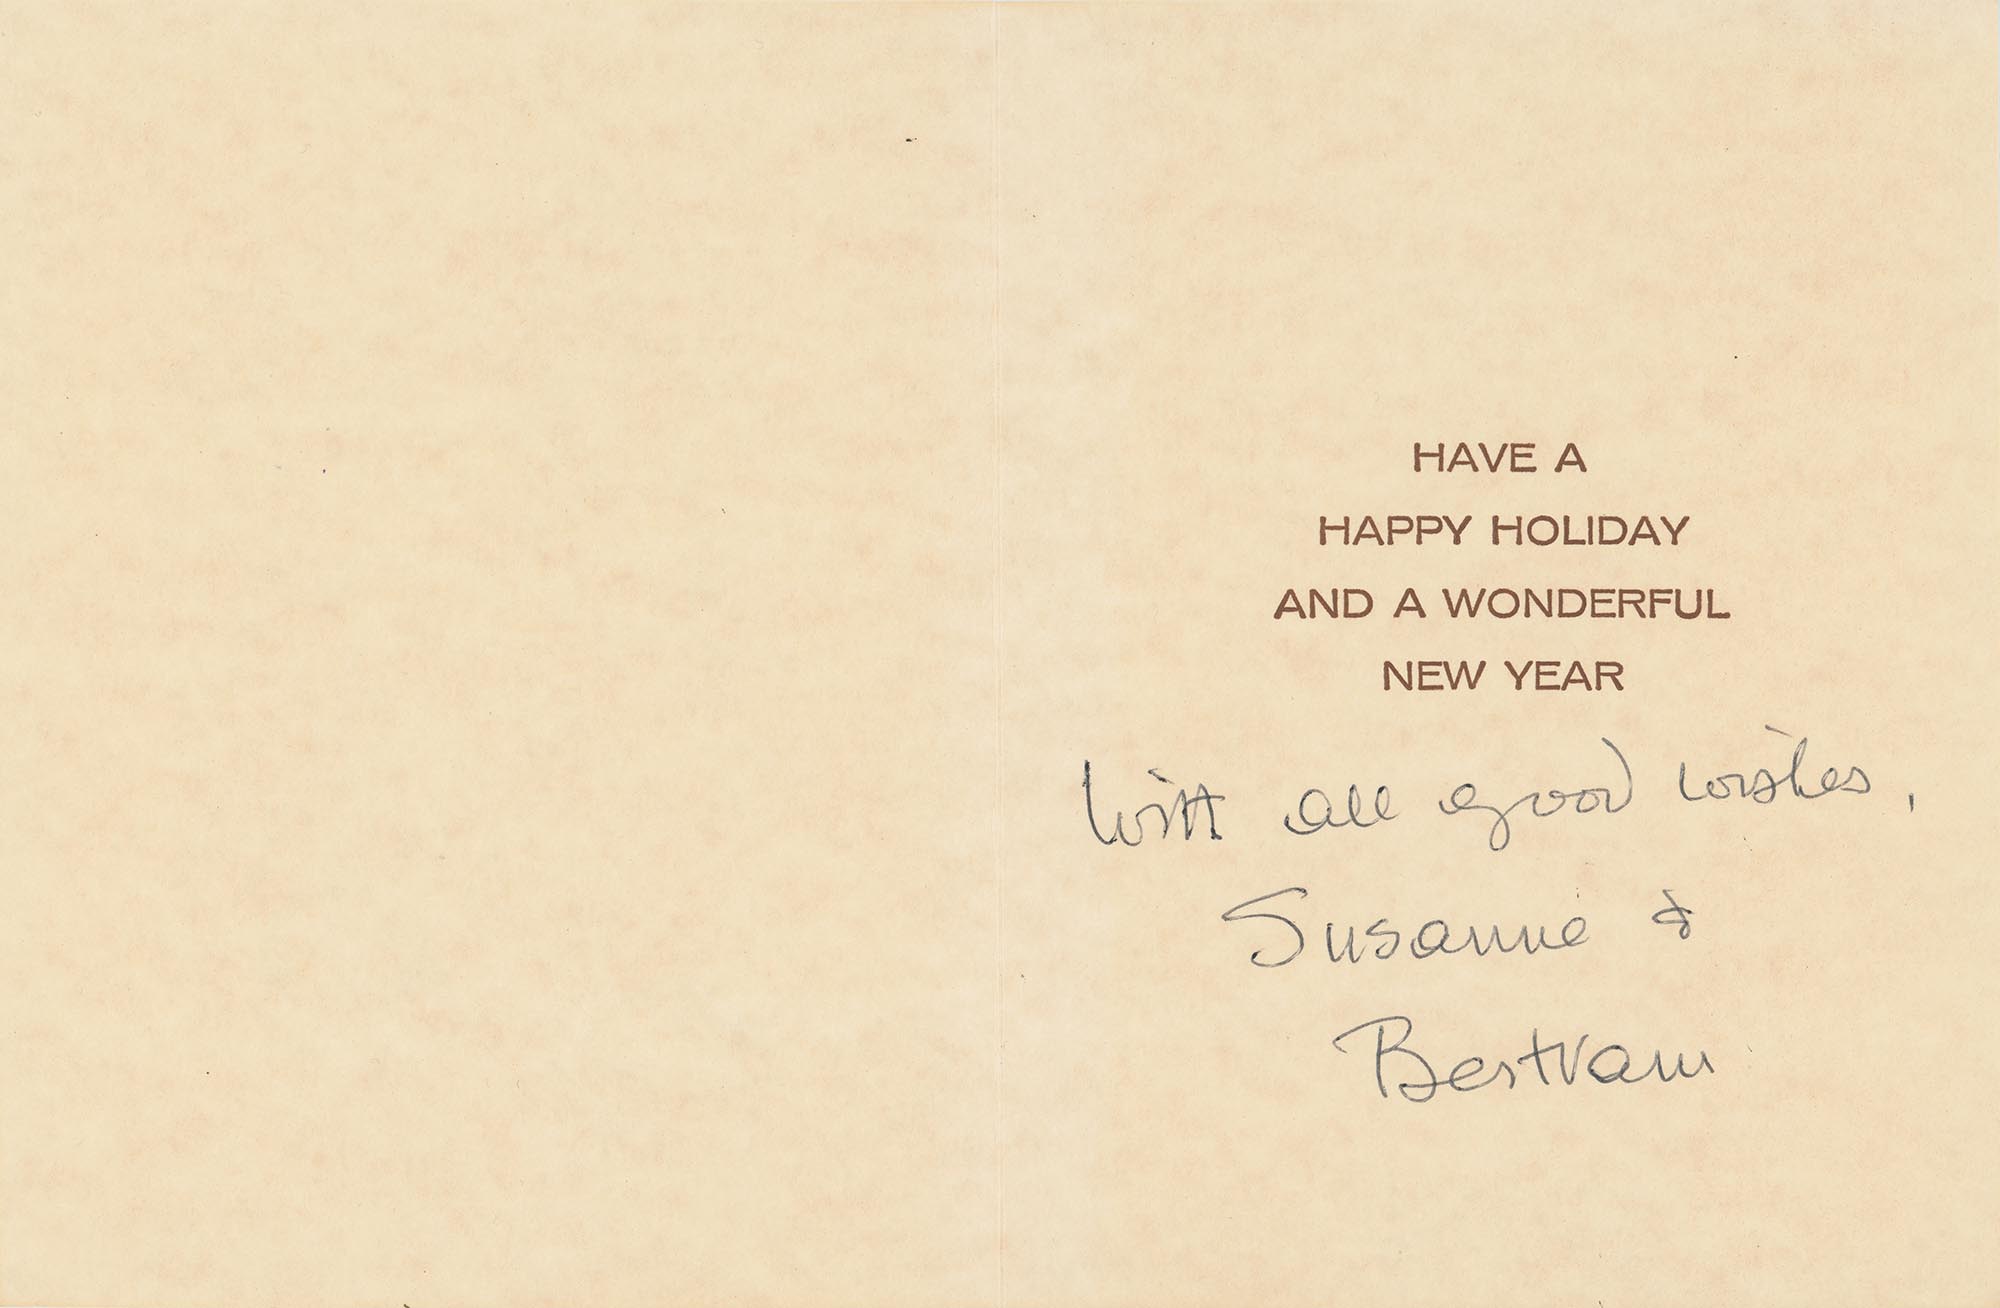 HAVE A
HAPPY HOLIDAY
AND A WONDERFUL
NEW YEAR
With all good wishes,
Susanne &
Bertram